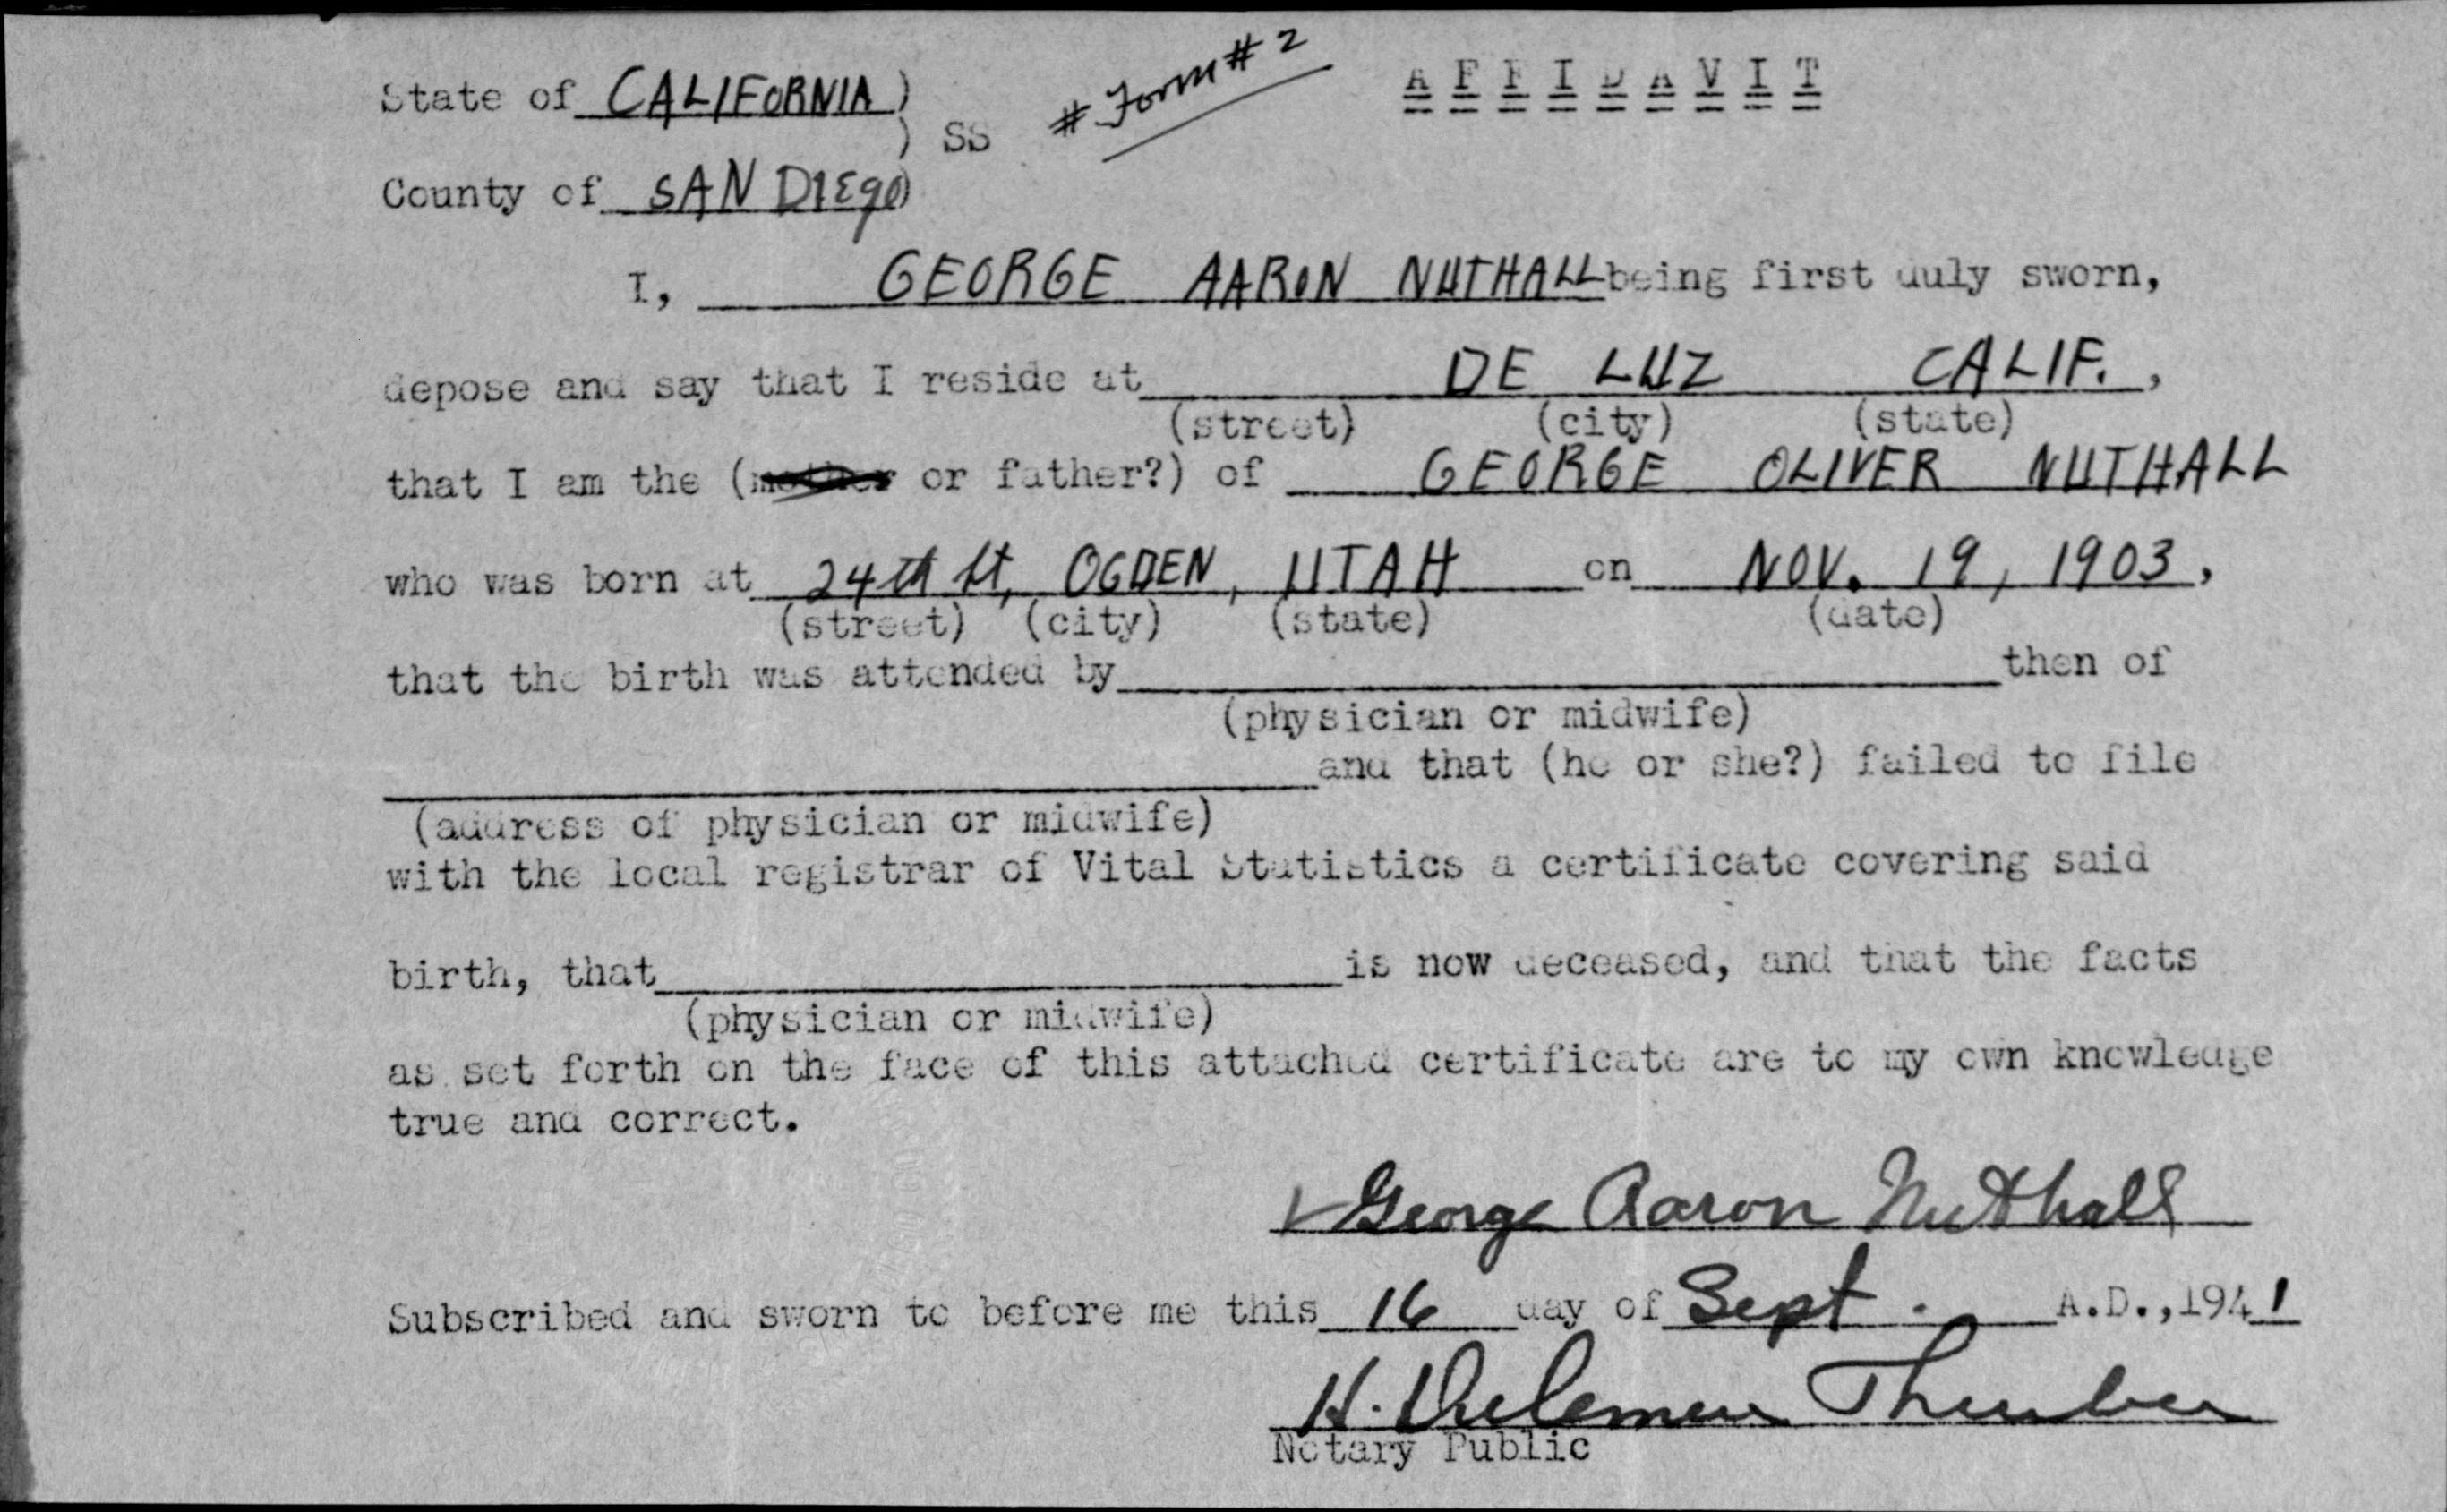 State of CALIFORNIA ) # Form # 2 AFFIDAVIT
) SS
County of SAN DIEgO )
I, GEORGE AARON NUTHALL being first duly sworn,
depose and say that I reside at DE LUZ CALIF. ,
(street) (city) (state)
that I am the (mother or father?) of GEORGE OLIVER NUTHALL
who was born at 24th St, OGDEN, UTAH on NOV. 19, 1903 ,
(street) (city) (state) (date)
that the birth was attended by then of
(physician or midwife)
and that (he or she?) failed to file
(address of physician or midwife)
with the local registrar of Vital Statistics a certificate covering said
birth, that is now deceased, and that the facts
(physician or midwife)
as set forth on the face of this attached certificate are to my own knowledge
true and correct.
George Aaron Nuthall
Subscribed and sworn to before me this 16 day of Sept. A.D.,1941
H.
Notary Public